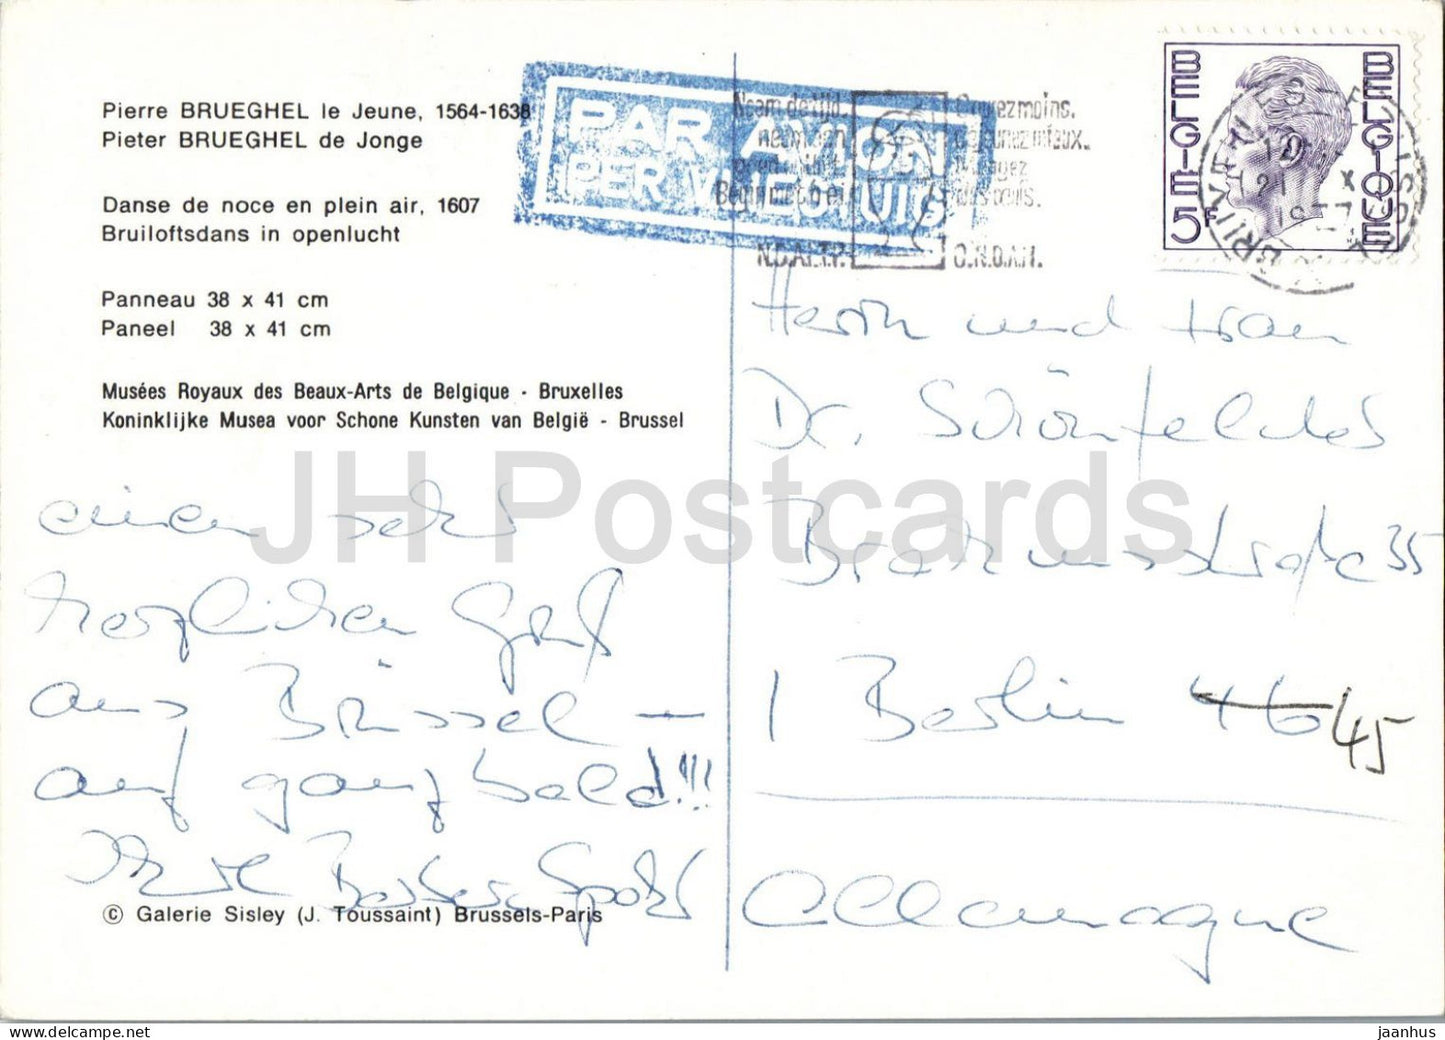 Pierre BRUEGHEL le Jeune, 1564-1638
Pieter BRUEGHEL de Jonge
Danse de noce en plein air, 1607
Bruiloftsdans in openlucht
Panneau 38 x 41 cm
Paneel 38 x 41 cm
Musées Royaux des Beaux-Arts de Belgique - Bruxelles
Koninklijke Musea voor Schone Kunsten van België - Brussel
einen sehr
herzlichen Gruß
aus Brüssel —
auf ganz bald!!!
Ihre Barbara
© Galerie Sisley (J. Toussaint) Brussels-Paris
PAR AVION
PER VLIEGTUIG
Neem de tijd,
Courez moins.
déjeunez mieux.
N.D.A.L.T.P.
O.N.D.A.H.
BELGIE 5F BELGIQUE
Herrn und Frau
Dr. Schönfelder
35
1 Berlin 46 45
Allemagne
JH Postcards
jaanhus | https://www.delcampe.net